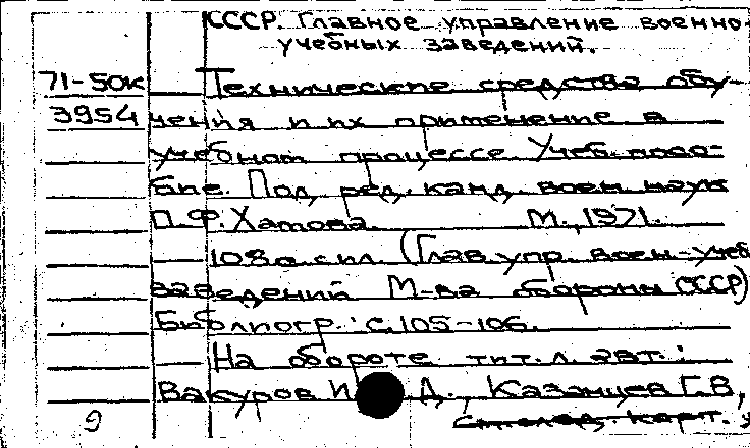 СССР. Главное управление военно-
учебных заведений.
71-50к Технические средства обу-
3954 чения и их применение в
учебном процессе. Учеб. посо-
бие. Под ред. канд. воен. наук
П.Ф. Хамова. М., 1971.
108 с. с ил. (Глав. упр. воен.-учеб.
заведений М-ва обороны СССР)
Библиогр.: с. 105-106.
На обороте тит. л. авт.:
Вакуров И. Д., Казанцев Г.В,
См. след. карт.